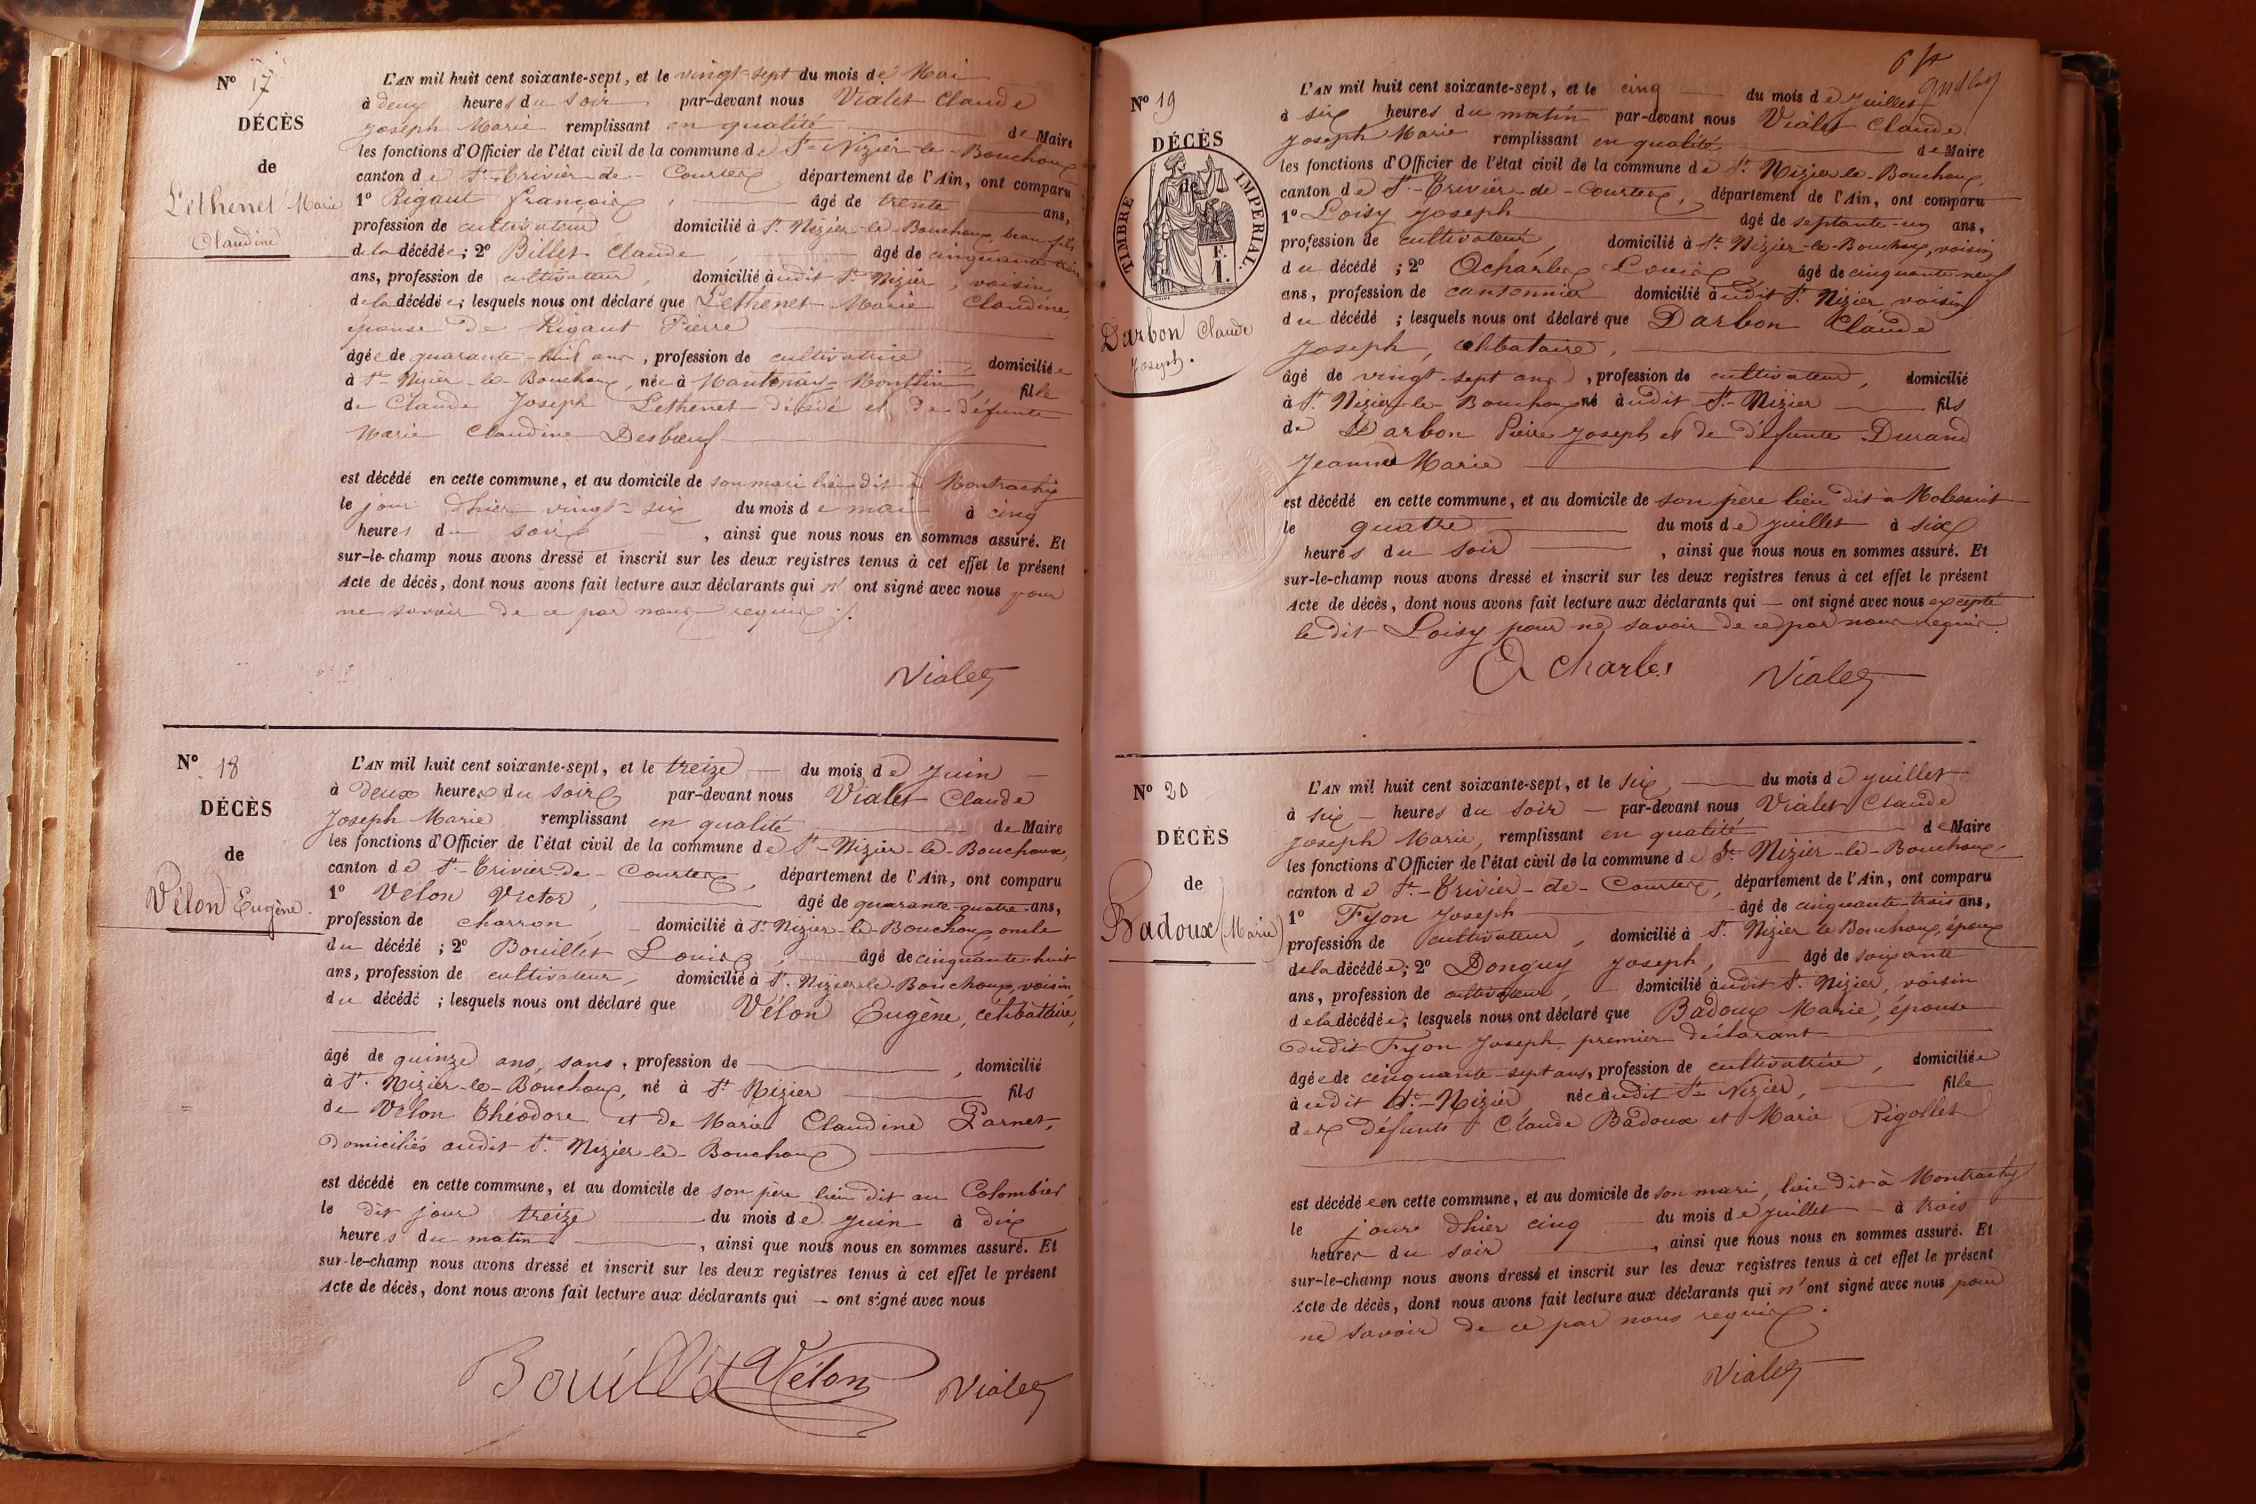 N° 17
DÉCÈS
de
Lethenet Marie
Claudine
L'AN mil huit cent soixante-sept, et le vingt-sept du mois de Mai
à deux heures du soir par-devant nous Vialet Claude
Joseph Marie remplissant en qualité de Maire
les fonctions d'Officier de l'état civil de la commune de St-Nizier-le-Bouchoux
canton de St-Trivier-de-Courtes, département de l'Ain, ont comparu
1° Rigaut François, âgé de trente ans,
profession de cultivateur domicilié à St-Nizier-le-Bouchoux, beau-fils
de la décédée; 2° Billet Claude, âgé de cinquante
ans, profession de cultivateur, domicilié audit St Nizier, voisin
de la décédée; lesquels nous ont déclaré que Lethenet Marie Claudine,
épouse de Rigaut Pierre
âgée de quarante-huit ans, profession de cultivatrice, domiciliée
à St-Nizier-le-Bouchoux, née à Mantenay-Montlin, fille
de Claude Joseph Lethenet décédé et de défunte
Marie Claudine Desbœuf
est décédé en cette commune, et au domicile de son mari lieu dit à Montrachy
le jour d'hier vingt-six du mois de mai à cinq
heures du soir, ainsi que nous nous en sommes assuré. Et
sur-le-champ nous avons dressé et inscrit sur les deux registres tenus à cet effet le présent
Acte de décès, dont nous avons fait lecture aux déclarants qui n'ont signé avec nous pour
ne savoir de ce par nous requis ./.
Vialet
N° 18
DÉCÈS
de
Vélon Eugène.
L'AN mil huit cent soixante-sept, et le treize du mois de Juin
à deux heures du soir par-devant nous Vialet Claude
Joseph Marie remplissant en qualité de Maire
les fonctions d'Officier de l'état civil de la commune de St-Nizier-le-Bouchoux,
canton de St-Trivier-de-Courtes, département de l'Ain, ont comparu
1° Vélon Victor, âgé de quarante-quatre ans,
profession de charron, domicilié à St-Nizier-le-Bouchoux, oncle
du décédé; 2° Bouillet Louis, âgé de cinquante-huit
ans, profession de cultivateur, domicilié à St-Nizier-le-Bouchoux, voisin
du décédé; lesquels nous ont déclaré que Vélon Eugène, célibataire,
âgé de quinze ans, sans, profession de, domicilié
à St-Nizier-le-Bouchoux, né à St Nizier fils
de Vélon Théodore et de Marie Claudine Parnet,
domiciliés audit St-Nizier-le-Bouchoux
est décédé en cette commune, et au domicile de son père lieu dit au Colombier
le dit jour treize du mois de Juin à dix
heures du matin, ainsi que nous nous en sommes assuré. Et
sur-le-champ nous avons dressé et inscrit sur les deux registres tenus à cet effet le présent
Acte de décès, dont nous avons fait lecture aux déclarants qui — ont signé avec nous
Bouillet Vélon Vialet
N° 19
DÉCÈS
de
TIMBRE IMPERIAL.
1 F.
Darbon Claude
Joseph.
L'AN mil huit cent soixante-sept, et le cinq du mois de Juillet
à six heures du matin par-devant nous Vialet Claude
Joseph Marie remplissant en qualité de Maire
les fonctions d'Officier de l'état civil de la commune de St-Nizier-le-Bouchoux,
canton de St-Trivier-de-Courtes, département de l'Ain, ont comparu
1° Loisy Joseph âgé de septante-un ans,
profession de cultivateur, domicilié à St-Nizier-le-Bouchoux, voisin
du décédé; 2° Acharles Louis, âgé de cinquante-neuf
ans, profession de cantonnier domicilié audit St Nizier voisin
du décédé; lesquels nous ont déclaré que Darbon Claude
Joseph, célibataire,
âgé de vingt-sept ans, profession de cultivateur, domicilié
à St-Nizier-le-Bouchoux né audit St-Nizier fils
de Darbon Pierre Joseph et de défunte Durand
Jeanne Marie
est décédé en cette commune, et au domicile de son père lieu dit à
le quatre du mois de Juillet à six
heures du soir, ainsi que nous nous en sommes assuré. Et
sur-le-champ nous avons dressé et inscrit sur les deux registres tenus à cet effet le présent
Acte de décès, dont nous avons fait lecture aux déclarants qui — ont signé avec nous excepté
le dit Loisy pour ne savoir de ce par nous requis.
A charles Vialet
N° 20
DÉCÈS
de
Badoux (Marie)
L'AN mil huit cent soixante-sept, et le six du mois de Juillet
à six heures du soir par-devant nous Vialet Claude
Joseph Marie, remplissant en qualité de Maire
les fonctions d'Officier de l'état civil de la commune de St-Nizier-le-Bouchoux
canton de St-Trivier-de-Courtes, département de l'Ain, ont comparu
1° Fyon Joseph âgé de cinquante-trois ans,
profession de cultivateur, domicilié à St-Nizier le Bouchoux, époux
de la décédée; 2° Donguy Joseph, âgé de soixante
ans, profession de cultivateur, domicilié audit St-Nizier, voisin
de la décédée; lesquels nous ont déclaré que Badoux Marie, épouse
dudit Fyon Joseph premier déclarant
âgée de cinquante-sept ans, profession de cultivatrice, domiciliée
audit St-Nizier née audit St-Nizier, fille
des défunts Claude Badoux et Marie Rigollet
est décédée en cette commune, et au domicile de son mari, lieu dit à Montrachy
le jour d'hier cinq du mois de Juillet à trois
heures du soir, ainsi que nous nous en sommes assuré. Et
sur-le-champ nous avons dressé et inscrit sur les deux registres tenus à cet effet le présent
Acte de décès, dont nous avons fait lecture aux déclarants qui n'ont signé avec nous pour
ne savoir de ce par nous requis.
Vialet